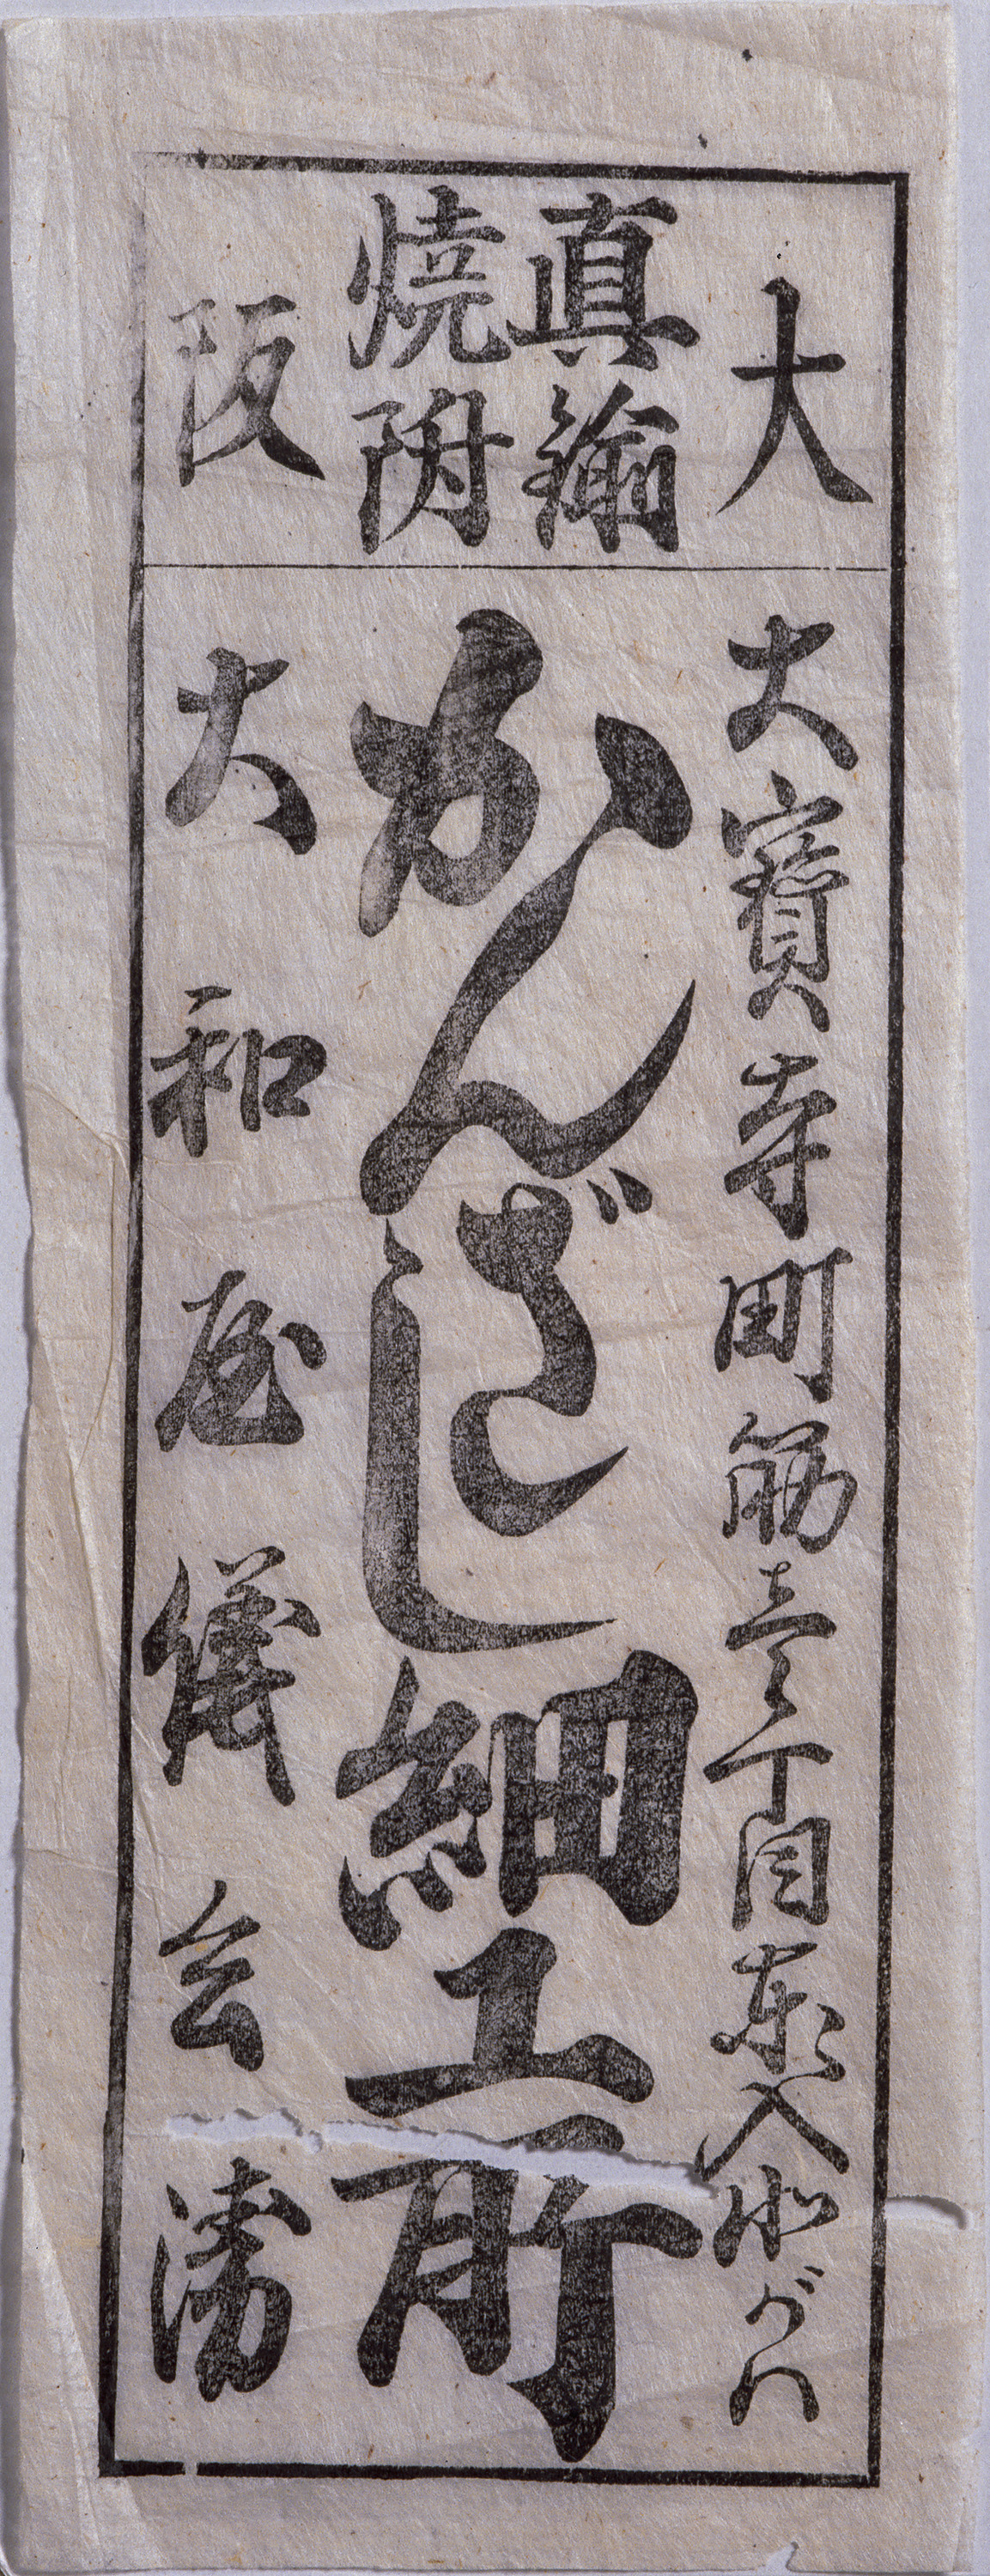 大阪
真鍮
焼附
大寳寺町筋壱丁目東入北がハ
かんざし細工所
大和屋儀